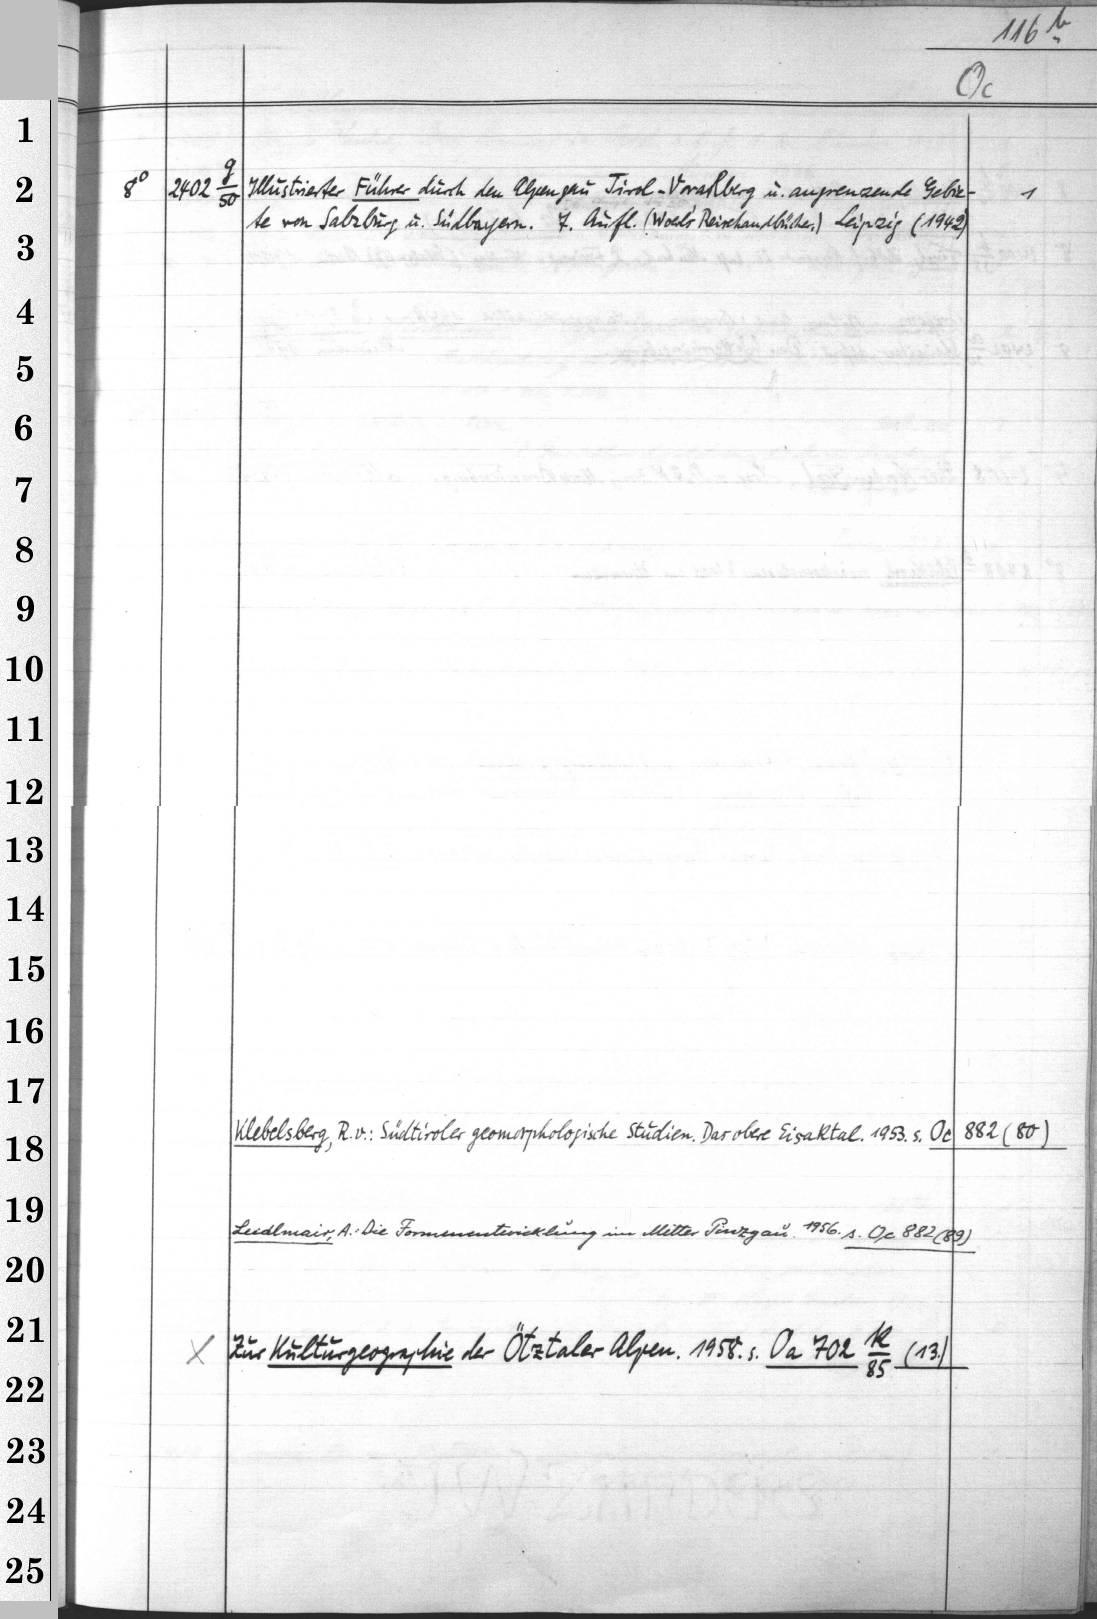 116 b
Oc
1
2
3
4
5
6
7
8
9
10
11
12
13
14
15
16
17
18
19
20
21
22
23
24
25
8° 2402 g/50 Illustrierter Führer durch den Alpengau Tirol-Vorarlberg u. angrenzende Gebie- 1
te von Salzburg u. Südbayern. 7. Aufl. (Woerl's Reisehandbücher.) Leipzig (1942)
Klebelsberg, R. v.: Südtiroler geomorphologische Studien. Das obere Eisaktal. 1953. s. Oc 882 (80)
Leidlmair, A.: Die Formenentwicklung im Mitter Pinzgau. 1956. s. Oc 882 (89)
X Zur Kulturgeographie der Ötztaler Alpen. 1958. s. Oa 702 k/85 (13.)